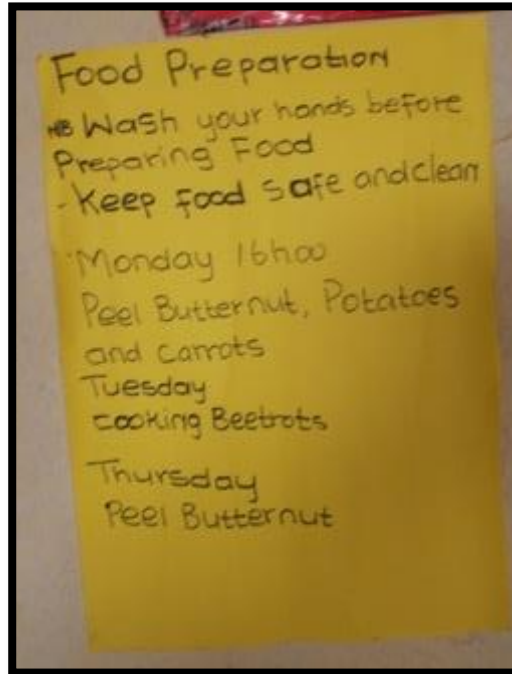 Food Preparation
NB Wash your hands before
Preparing Food
- Keep food safe and clean
Monday 16h00
Peel Butternut, Potatoes
and carrots
Tuesday
cooking Beetrots
Thursday
Peel Butternut